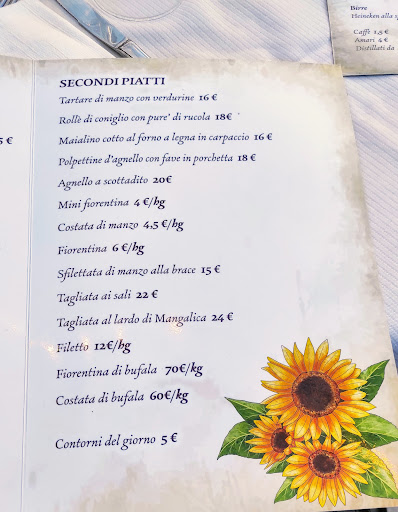 Birre
Heineken alla
Caffè 1,5 €
Amari 4 €
Distillati da
5 €
SECONDI PIATTI
Tartare di manzo con verdurine 16 €
Rollè di coniglio con pure' di rucola 18€
Maialino cotto al forno a legna in carpaccio 16 €
Polpettine d'agnello con fave in porchetta 18 €
Agnello a scottadito 20€
Mini fiorentina 4 €/hg
Costata di manzo 4,5 €/hg
Fiorentina 6 €/hg
Sfilettata di manzo alla brace 15 €
Tagliata ai sali 22 €
Tagliata al lardo di Mangalica 24 €
Filetto 12€/hg
Fiorentina di bufala 70€/kg
Costata di bufala 60€/kg
Contorni del giorno 5 €